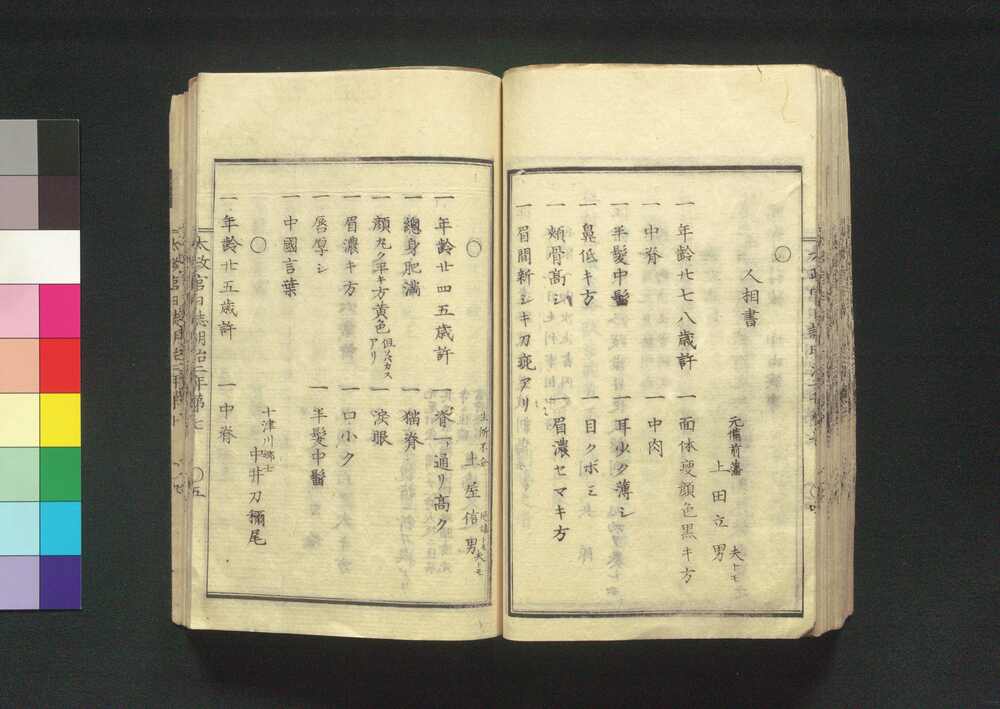 〇
人相書
元備前藩
上田立男
夫トモ
一年齢廿七八歳許 一面体痩顔色黒キ方
一中脊 一中肉
一半髪中髷 一耳少ク薄シ
一鼻低キ方 一目クボミ
一頬骨高シ 一眉濃セマキ方
一眉間新シキ刀疵アリ
〇
生所不分
土屋信男
夫トモ
一年齢廿四五歳許 一脊一通リ高ク
一總身肥満 一猫脊
一顔丸ク平キ方黄色 但ソバカスアリ 一涙眼
一眉濃キ方 一口小ク
一唇厚シ 一半髪中髷
一中國言葉
〇
十津川郷士
中井刀禰尾
一年齢廿五歳許 一中脊
太政官日誌明治二年第七
〇五